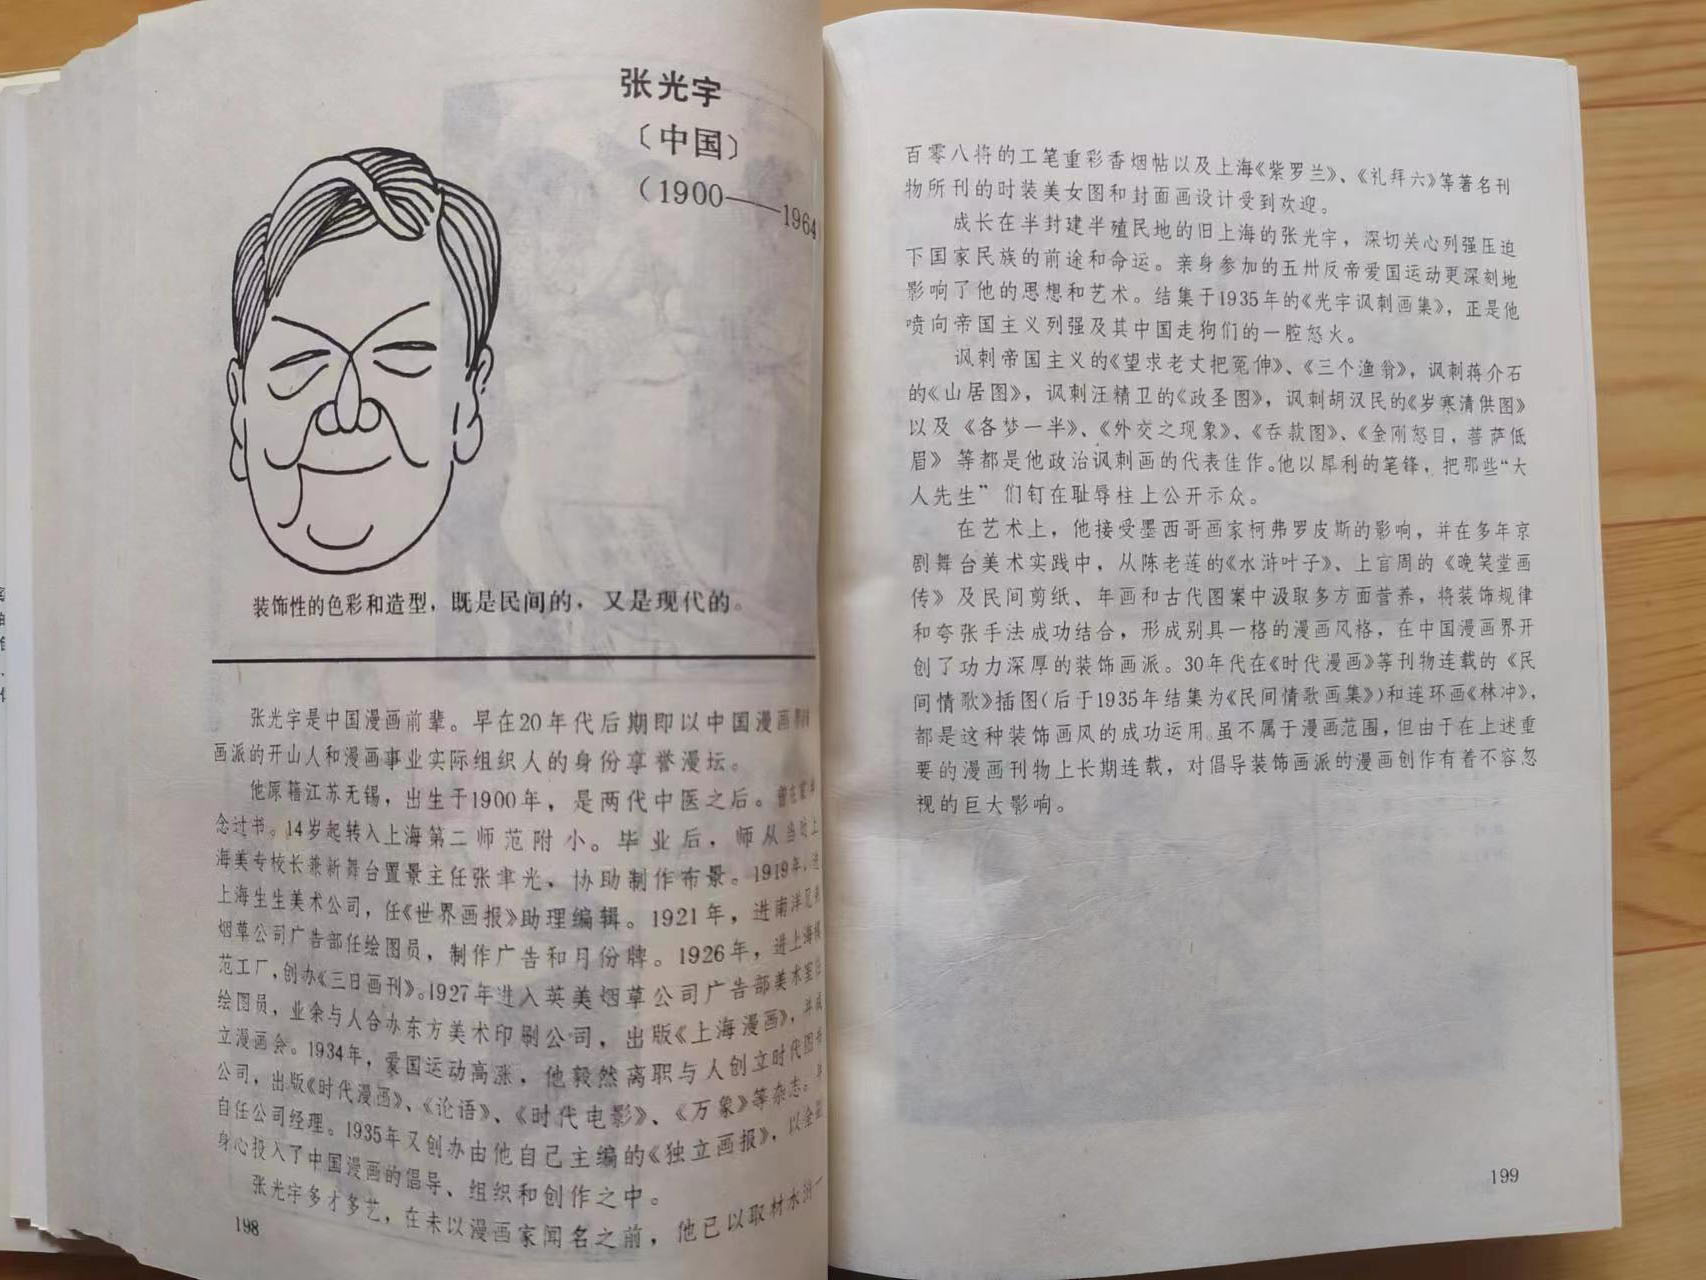 张光宇
〔中国〕
（1900——1964
装饰性的色彩和造型，既是民间的，又是现代的。
张光宇是中国漫画前辈。早在20年代后期即以中国漫画
画派的开山人和漫画事业实际组织人的身份享誉漫坛。
他原籍江苏无锡，出生于1900年，是两代中医之后。曾在家
念过书。14岁起转入上海第二师范附小。毕业后，师从当时上
海美专校长兼新舞台置景主任张聿光，协助制作布景。1919年，进
上海生生美术公司，任《世界画报》助理编辑。1921年，进南洋兄弟
烟草公司广告部任绘图员，制作广告和月份牌。1926年，进上海模
范工厂，创办《三日画刊》。1927年进入英美烟草公司广告部美术室任
绘图员，业余与人合办东方美术印刷公司，出版《上海漫画》，并成
立漫画会。1934年，爱国运动高涨，他毅然离职与人创立时代图书
公司，出版《时代漫画》、《论语》、《时代电影》、《万象》等杂志。并
自任公司经理。1935年又创办由他自己主编的《独立画报》，以全部
身心投入了中国漫画的倡导、组织和创作之中。
张光宇多才多艺，在未以漫画家闻名之前，他已以取材水浒一
198
百零八将的工笔重彩香烟帖以及上海《紫罗兰》、《礼拜六》等著名刊
物所刊的时装美女图和封面画设计受到欢迎。
成长在半封建半殖民地的旧上海的张光宇，深切关心列强压迫
下国家民族的前途和命运。亲身参加的五卅反帝爱国运动更深刻地
影响了他的思想和艺术。结集于1935年的《光宇讽刺画集》，正是他
喷向帝国主义列强及其中国走狗们的一腔怒火。
讽刺帝国主义的《望求老丈把冤伸》、《三个渔翁》，讽刺蒋介石
的《山居图》，讽刺汪精卫的《政圣图》，讽刺胡汉民的《岁寒清供图》
以及《各梦一半》、《外交之现象》、《吞款图》、《金刚怒目，菩萨低
眉》等都是他政治讽刺画的代表佳作。他以犀利的笔锋，把那些“大
人先生”们钉在耻辱柱上公开示众。
在艺术上，他接受墨西哥画家柯弗罗皮斯的影响，并在多年京
剧舞台美术实践中，从陈老莲的《水浒叶子》、上官周的《晚笑堂画
传》及民间剪纸、年画和古代图案中汲取多方面营养，将装饰规律
和夸张手法成功结合，形成别具一格的漫画风格，在中国漫画界开
创了功力深厚的装饰画派。30年代在《时代漫画》等刊物连载的《民
间情歌》插图（后于1935年结集为《民间情歌画集》）和连环画《林冲》，
都是这种装饰画风的成功运用。虽不属于漫画范围，但由于在上述重
要的漫画刊物上长期连载，对倡导装饰画派的漫画创作有着不容忽
视的巨大影响。
199